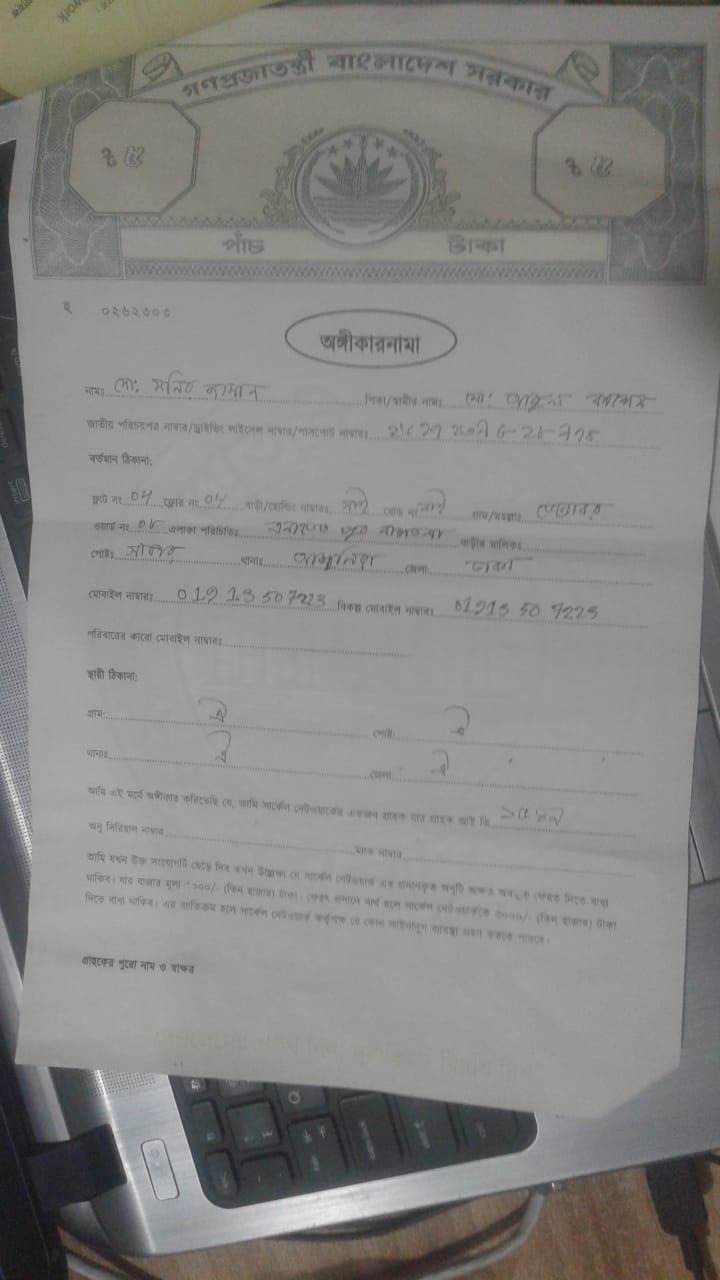 গণপ্রজাতন্ত্রী বাংলাদেশ সরকার
৳ ৫ ৳ ৫
পাঁচ টাকা
০২৬২৩০৩
অঙ্গীকারনামা
নামঃ মো: মনির জামান পিতা/স্বামীর নামঃ মো: আবুল কাশেম
জাতীয় পরিচয়পত্র নাম্বার/ড্রাইভিং লাইসেন্স নাম্বার/পাসপোর্ট নাম্বারঃ
বর্তমান ঠিকানা:
ফ্লাট নং 04 ফ্লোর নং 04 বাড়ী/হোল্ডিং নাম্বারঃ নাই রোড নং নাই গ্রাম/মহল্লাঃ
ওয়ার্ড নং এলাকা পরিচিতিঃ বাড়ীর মালিকঃ
পোষ্টঃ সাভার থানাঃ আশুলিয়া জেলা: ঢাকা
মোবাইল নাম্বারঃ 01913507223 বিকল্প মোবাইল নাম্বারঃ 01913507223
পরিবারের কারো মোবাইল নাম্বারঃ
স্থায়ী ঠিকানা:
গ্রাম: ঐ পোষ্ট: ঐ
থানাঃ ঐ জেলা: ঐ
আমি এই মর্মে অঙ্গীকার করিতেছি যে, আমি সার্কেল নেটওয়ার্কের একজন গ্রাহক যার গ্রাহক আই ডি
অনু সিরিয়াল নাম্বার ম্যাক নাম্বার
আমি যখন উক্ত সংযোগটি ছেড়ে দিব তখন উল্লেক্ষ্য যে সার্কেল নেটওয়ার্ক এর প্রদানকৃত অনুটি অক্ষত অবস্থায় ফেরত দিতে বাধ্য
থাকিব। যার বাজার মূল্য ৩০০০/- (তিন হাজার) টাকা। ফেরৎ প্রদানে ব্যর্থ হলে সার্কেল নেটওয়ার্ককে ৩০০০/- (তিন হাজার) টাকা
দিতে বাধ্য থাকিব। এর ব্যতিক্রম হলে সার্কেল নেটওয়ার্ক কর্তৃপক্ষ যে কোন আইনানুগ ব্যবস্থা গ্রহণ করতে পারবে।
গ্রাহকের পুরো নাম ও স্বাক্ষর